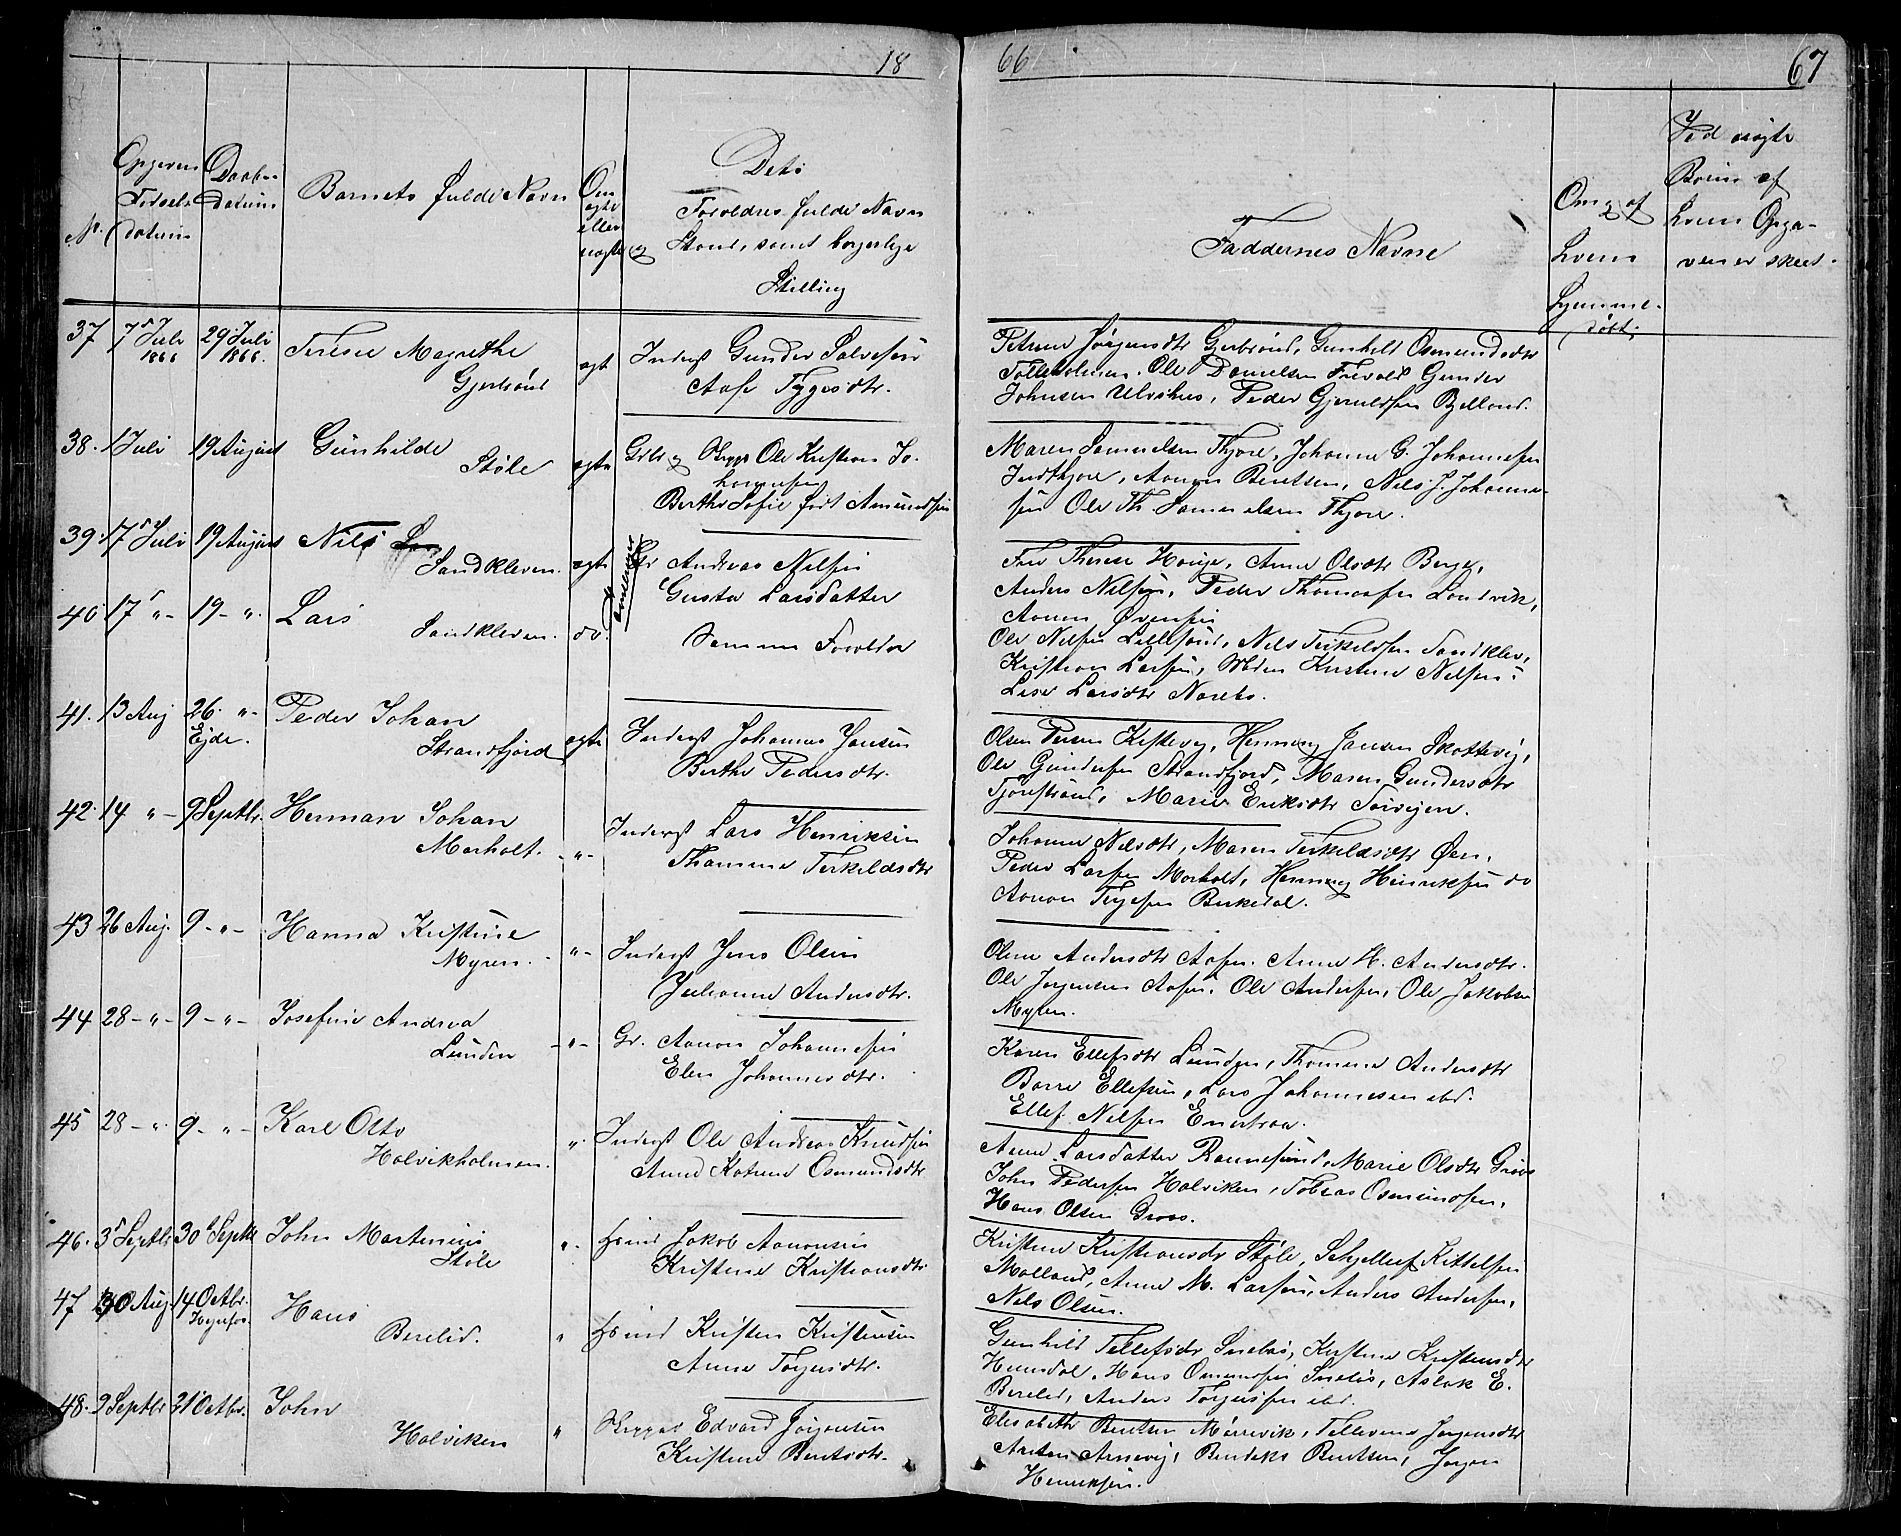 18
66
67
No.
Opgiven Fødsels datum
Daabs datum
Barnets fulde Navn
Om ægte eller uægte
Dets Forældres fulde Navn og Stand, samt borgerlige Stilling
Faddernes Navne
Om og af hvem hjemmedøbt
Ved uægte Børn af hvem Opgaven er skeet.
37 7de Juli 1866 29 Juli 1866. Terese Magrethe
Gjerbrønd ægt Inderst Gunder Salvesen
Aase Tygesdtr.
Petrine Jørgensdtr Gjerbrønd, Gunhild Osmundsdtr
Tolleholmen. Ole Danielsen Trevold Gunder
Johnsen Ulvshus, Peder Gjeruldsen Bjelland.
38. 1 Juli 19 August Gunhilde
Støle ægte Ole Kristian
Berthe Sofie født Amundsen
Maren Samuelsen Thjore, Johanne G. Johannesen
Indthjore, Aanon Bentsen, Nils J. Johanne-
sen Ole Th. Samuelsen Thjore.
39. 17de Juli 19 August Nils
Sandkleven. ægte Gr Andreas Nilsen
Gusta Larsdatter
Tvillinger
Fru Therese Hauge, Anne Olsdtr Berge,
Anders Nilsen, Peder Thomassen Landvik,
Aanon Øvensen
40 17 " - 19 - ". Lars
Sandkleven. do. Samme Forældre
Ole Nilsen Lillesand, Nils Terkildsen Sandklev,
Kristian Larsen, Kirstine Nilsen
Lise Larsdtr Narebo.
41. 13 Aug 26. "- Ejde. Peder Johan
Strandfjord ægte Inderst Johannes Jansen
Berthe Pedersdtr.
Olsen Persen Kistevig, Henning Jansen Skottevig,
Ole Gundersen Strandfjord, Maren Gundersdtr
Tjorestrand, Marie Eriksdtr
42. 14 " - 9 Septbr. Herman Johan
Morholt. -"- Inderst Lars Henriksen
Thomine Terkildsdtr
Johanne Nilsdtr, Maren Terkildsdtr
Peder Larsen Morholt, Henning Henriksen do
Aanon Terjesen Birkedal.
43 26 Aug. 9 - " - Hanna Kristine
Myren. -"- Inderst Jens Olsen
Julianne Andersdtr.
Oline Andersdtr Aasen. Anne H. Andersdtr.
Ole Jørgensen Aasen. Ole Andersen, Ole Jakobsen
Myren.
44 28 - " - 9 - " - Josefine Andrea
Lunden -"- Gr. Aanon Johannesen
Elen Johannesdtr.
Karen Ellefsdtr Lunden, Thomine Andersdtr
Børre Ellefsen, Lars Johannesen ibd.
Ellef Nilsen
45 28 - ". 9 - " - Karl Otto
Holvikholmen. " Inderst Ole Andreas Knudsen
Anne Katrine Osmundsdtr
Anne Larsdatter Rannesund, Marie Olsdtr Groos
John Pedersen Holviken, Tobias Osmundsen,
Hans Olsen Groos.
46. 3de Septbr. 30 Septbr John Martinius
Støle ". Hsmd Jakob Aanonsen
Kristine Kristiansdtr
Kristine Kristiansdtr Støle, Schjellef Kittelsen
Molland, Anne M. Larsen, Anders Andersen,
Nils Olsen.
47 30 Aug. 14 Octbr. Hans
Berelid. " Hsmd Kristen Kristensen
Anne Torjusdtr.
Gunhild Tellefsdtr Snebos, Kirstine Kristensdtr
Heimdal, Hans Snebos, Aslak E.
Berelid, Anders Torjussen ibd.
48. 2 Septbr 21 Octbr. John
Holviken " Skipper Edvard Jørgensen
Kristine Bentsdtr.
Elisabeth Bentsen Mørrevik, Tellevine Jørgensdtr
Arnevig, Bendiks Bentsen, Jørgen
Henriksen.